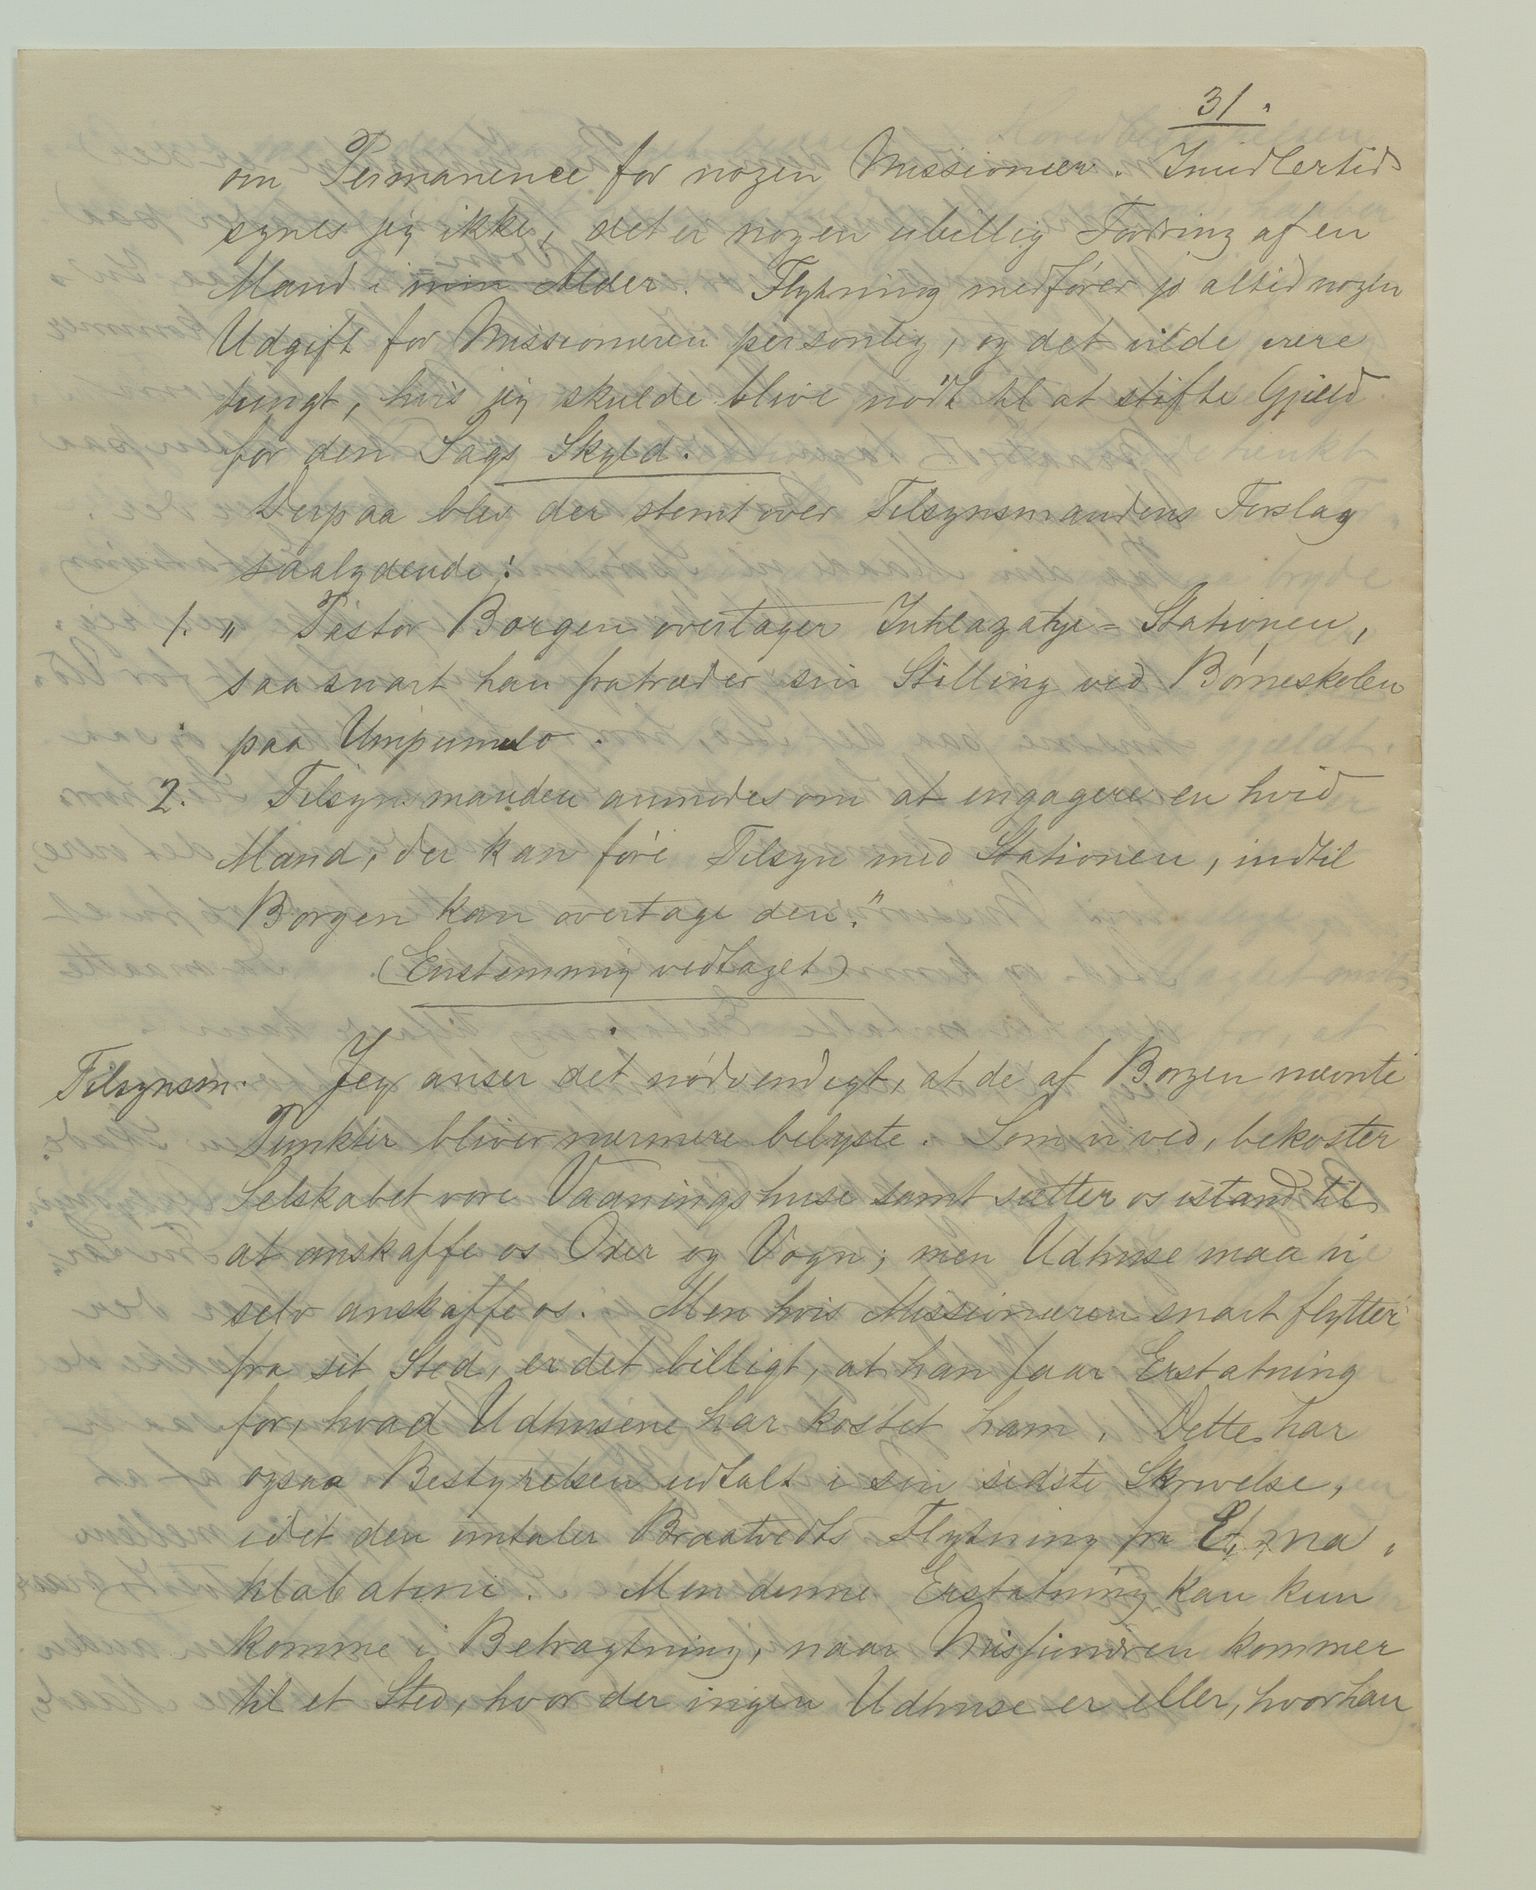 31.
om Permanence for nogen Missionær. Imidlertid
synes jeg ikke, det er nogen ubillig Fordring af en
Mand i min Alder. Flytning medfører jo altid nogen
Udgift for Missionæren personlig, og det vilde være
tungt, hvis jeg skulde blive nødt til at stifte Gjæld
for den Sags Skyld.
Derpaa blev der stemt over Tilsynsmandens Forslag
saalydende:
1. „ Pastor Borgen overtager Inhlazatje-Stationen,
saasnart han fratræder sin Stilling ved Børneskolen
paa Umpumulo.
2. Tilsynsmanden anmodes om at engagere en hvid
Mand, der kan føre Tilsyn med Stationen, indtil
Borgen kan overtage den."
(Enstemmig vedtaget)
Tilsynsm. Jeg anser det nødvendigt, at de af Borgen nævnte
Punkter bliver nærmere belyste. Som vi ved, bekoster
Selskabet vore Vaaningshuse samt sætter os istand til
at anskaffe os Oxer og Vogn; men Udhuse maa vi
selv anskaffe os. Men hvis Missionæren snart flytter
fra sit Sted, er det billigt, at han faar Erstatning
for, hvad Udhusene har kostet ham. Dette har
ogsaa Bestyrelsen udtalt i sin sidste Skrivelse,
idet den omtaler Braatvedts Flytning fra Ekna,
klabatini. Men denne Erstatning kan kun
komme i Betragtning, naar Missionæren kommer
til et Sted, hvor der ingen Udhuse er eller, hvor han